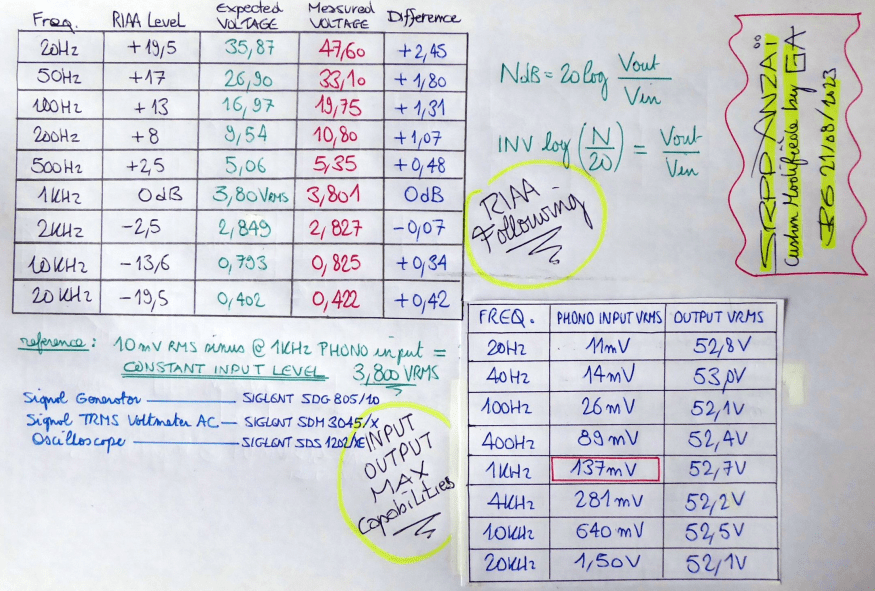 Freq. RIAA Level Expected VOLTAGE Measured VOLTAGE Difference
20Hz +19,5 35,87 47,60 +2,45
50Hz +17 26,90 33,10 +1,80
100Hz +13 16,97 19,75 +1,31
200Hz +8 9,54 10,80 +1,07
500Hz +2,5 5,06 5,35 +0,48
1KHz 0dB 3,80VRMS 3,801 0dB
2KHz -2,5 2,849 2,827 -0,07
10KHz -13,6 0,793 0,825 +0,34
20KHz -19,5 0,402 0,422 +0,42
NdB = 20log Vout/Vin
INV log (N/20) = Vout/Vin
RIAA
Following
SRPP ANZAI
Custom Modifiede by GA
21/08/2023
reference: 10mV RMS sinus @ 1KHz PHONO input =
CONSTANT INPUT LEVEL 3,800 VRMS
Signal Generator — SIGLENT SDG 805/10
Signal TRMS Voltmeter AC — SIGLENT SDM 3045/X
Oscilloscope — SIGLENT SDS 1202/XE
INPUT
OUTPUT
MAX
Capabilities
FREQ. PHONO INPUT VRMS OUTPUT VRMS
20Hz 11mV 52,8V
40Hz 14mV 53,0V
100Hz 26mV 52,1V
400Hz 89mV 52,4V
1KHz 137mV 52,7V
4KHz 281mV 52,2V
10KHz 640mV 52,5V
20KHz 1,50V 52,1V